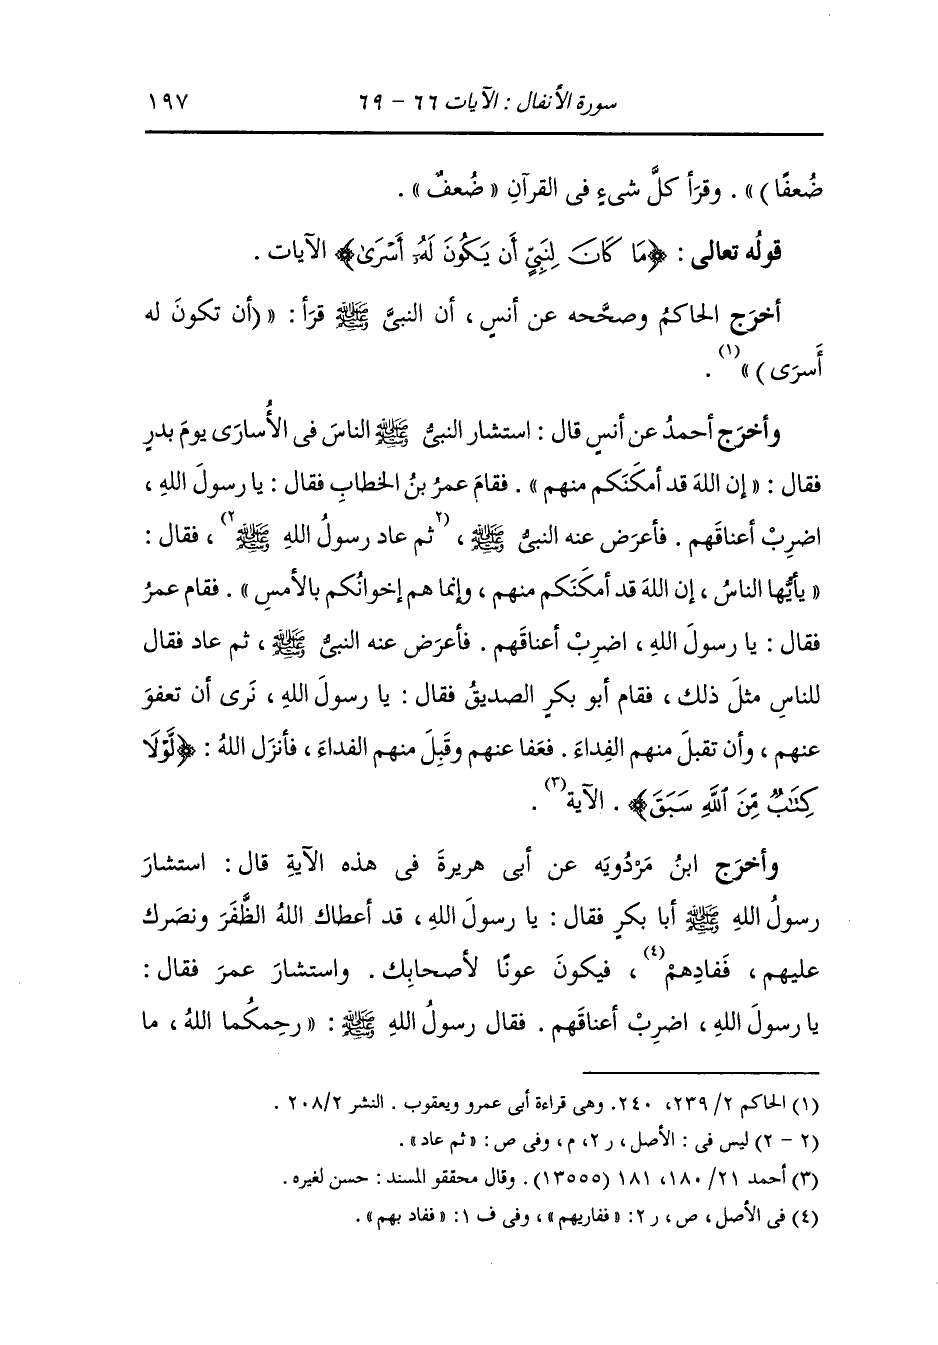 سورة الأنفال : الآيات ٦٦ - ٦٩ ١٩٧
ضُعفًا) » . وقرَأ كلَّ شىءٍ فى القرآنِ « ضُعفٌ » .
قولُه تعالى : ﴿مَا كَانَ لِنَبِيٍّ أَن يَكُونَ لَهُۥٓ أَسْرَىٰ﴾ الآيات .
أخرَج الحاكمُ وصحَّحه عن أنسٍ ، أن النبىَّ ﷺ قرَأ : « (أن تكونَ له
أَسرَى) »(١) .
وأخرَج أحمدُ عن أنسٍ قال : استشار النبىُّ ﷺ الناسَ فى الأُسارَى يومَ بدرٍ
فقال : « إن اللهَ قد أمكَنَكم منهم » . فقامَ عمرُ بنُ الخطابِ فقال : يا رسولَ اللهِ ،
اضرِبْ أعناقَهم . فأعرَض عنه النبىُّ ﷺ ، (٢ثم عاد رسولُ اللهِ ﷺ٢) ، فقال :
« يأيُّها الناسُ ، إن اللهَ قد أمكَنَكم منهم ، وإنما هم إخوانُكم بالأمسِ » . فقام عمرُ
فقال : يا رسولَ اللهِ ، اضرِبْ أعناقَهم . فأعرَض عنه النبىُّ ﷺ ، ثم عاد فقال
للناسِ مثلَ ذلك ، فقام أبو بكرٍ الصديقُ فقال : يا رسولَ اللهِ ، نَرى أن تعفوَ
عنهم ، وأن تقبلَ منهم الفِداءَ . فعَفا عنهم وقَبِلَ منهم الفداءَ ، فأنزَل اللهُ : ﴿لَّوْلَا
كِتَٰبٌ مِّنَ ٱللَّهِ سَبَقَ﴾ . الآية(٣) .
وأخرَج ابنُ مَرْدُويَه عن أبى هريرةَ فى هذه الآيةِ قال : استشارَ
رسولُ اللهِ ﷺ أبا بكرٍ فقال : يا رسولَ اللهِ ، قد أعطاك اللهُ الظَّفَرَ ونصَرك
عليهم ، فَفادِهمْ(٤) ، فيكونَ عونًا لأصحابِك . واستشارَ عمرَ فقال :
يا رسولَ اللهِ ، اضرِبْ أعناقَهم . فقال رسولُ اللهِ ﷺ : « رحِمكُما اللهُ ، ما
(١) الحاكم ٢/ ٢٣٩، ٢٤٠. وهى قراءة أبى عمرو ويعقوب . النشر ٢٠٨/٢ .
(٢ - ٢) ليس فى : الأصل ، ر ٢، م ، وفى ص : « ثم عاد » .
(٣) أحمد ٢١/ ١٨٠، ١٨١ (١٣٥٥٥) . وقال محققو المسند : حسن لغيره .
(٤) فى الأصل ، ص ، ر ٢: « ففاريهم » ، وفى ف ١: « ففاد بهم » .